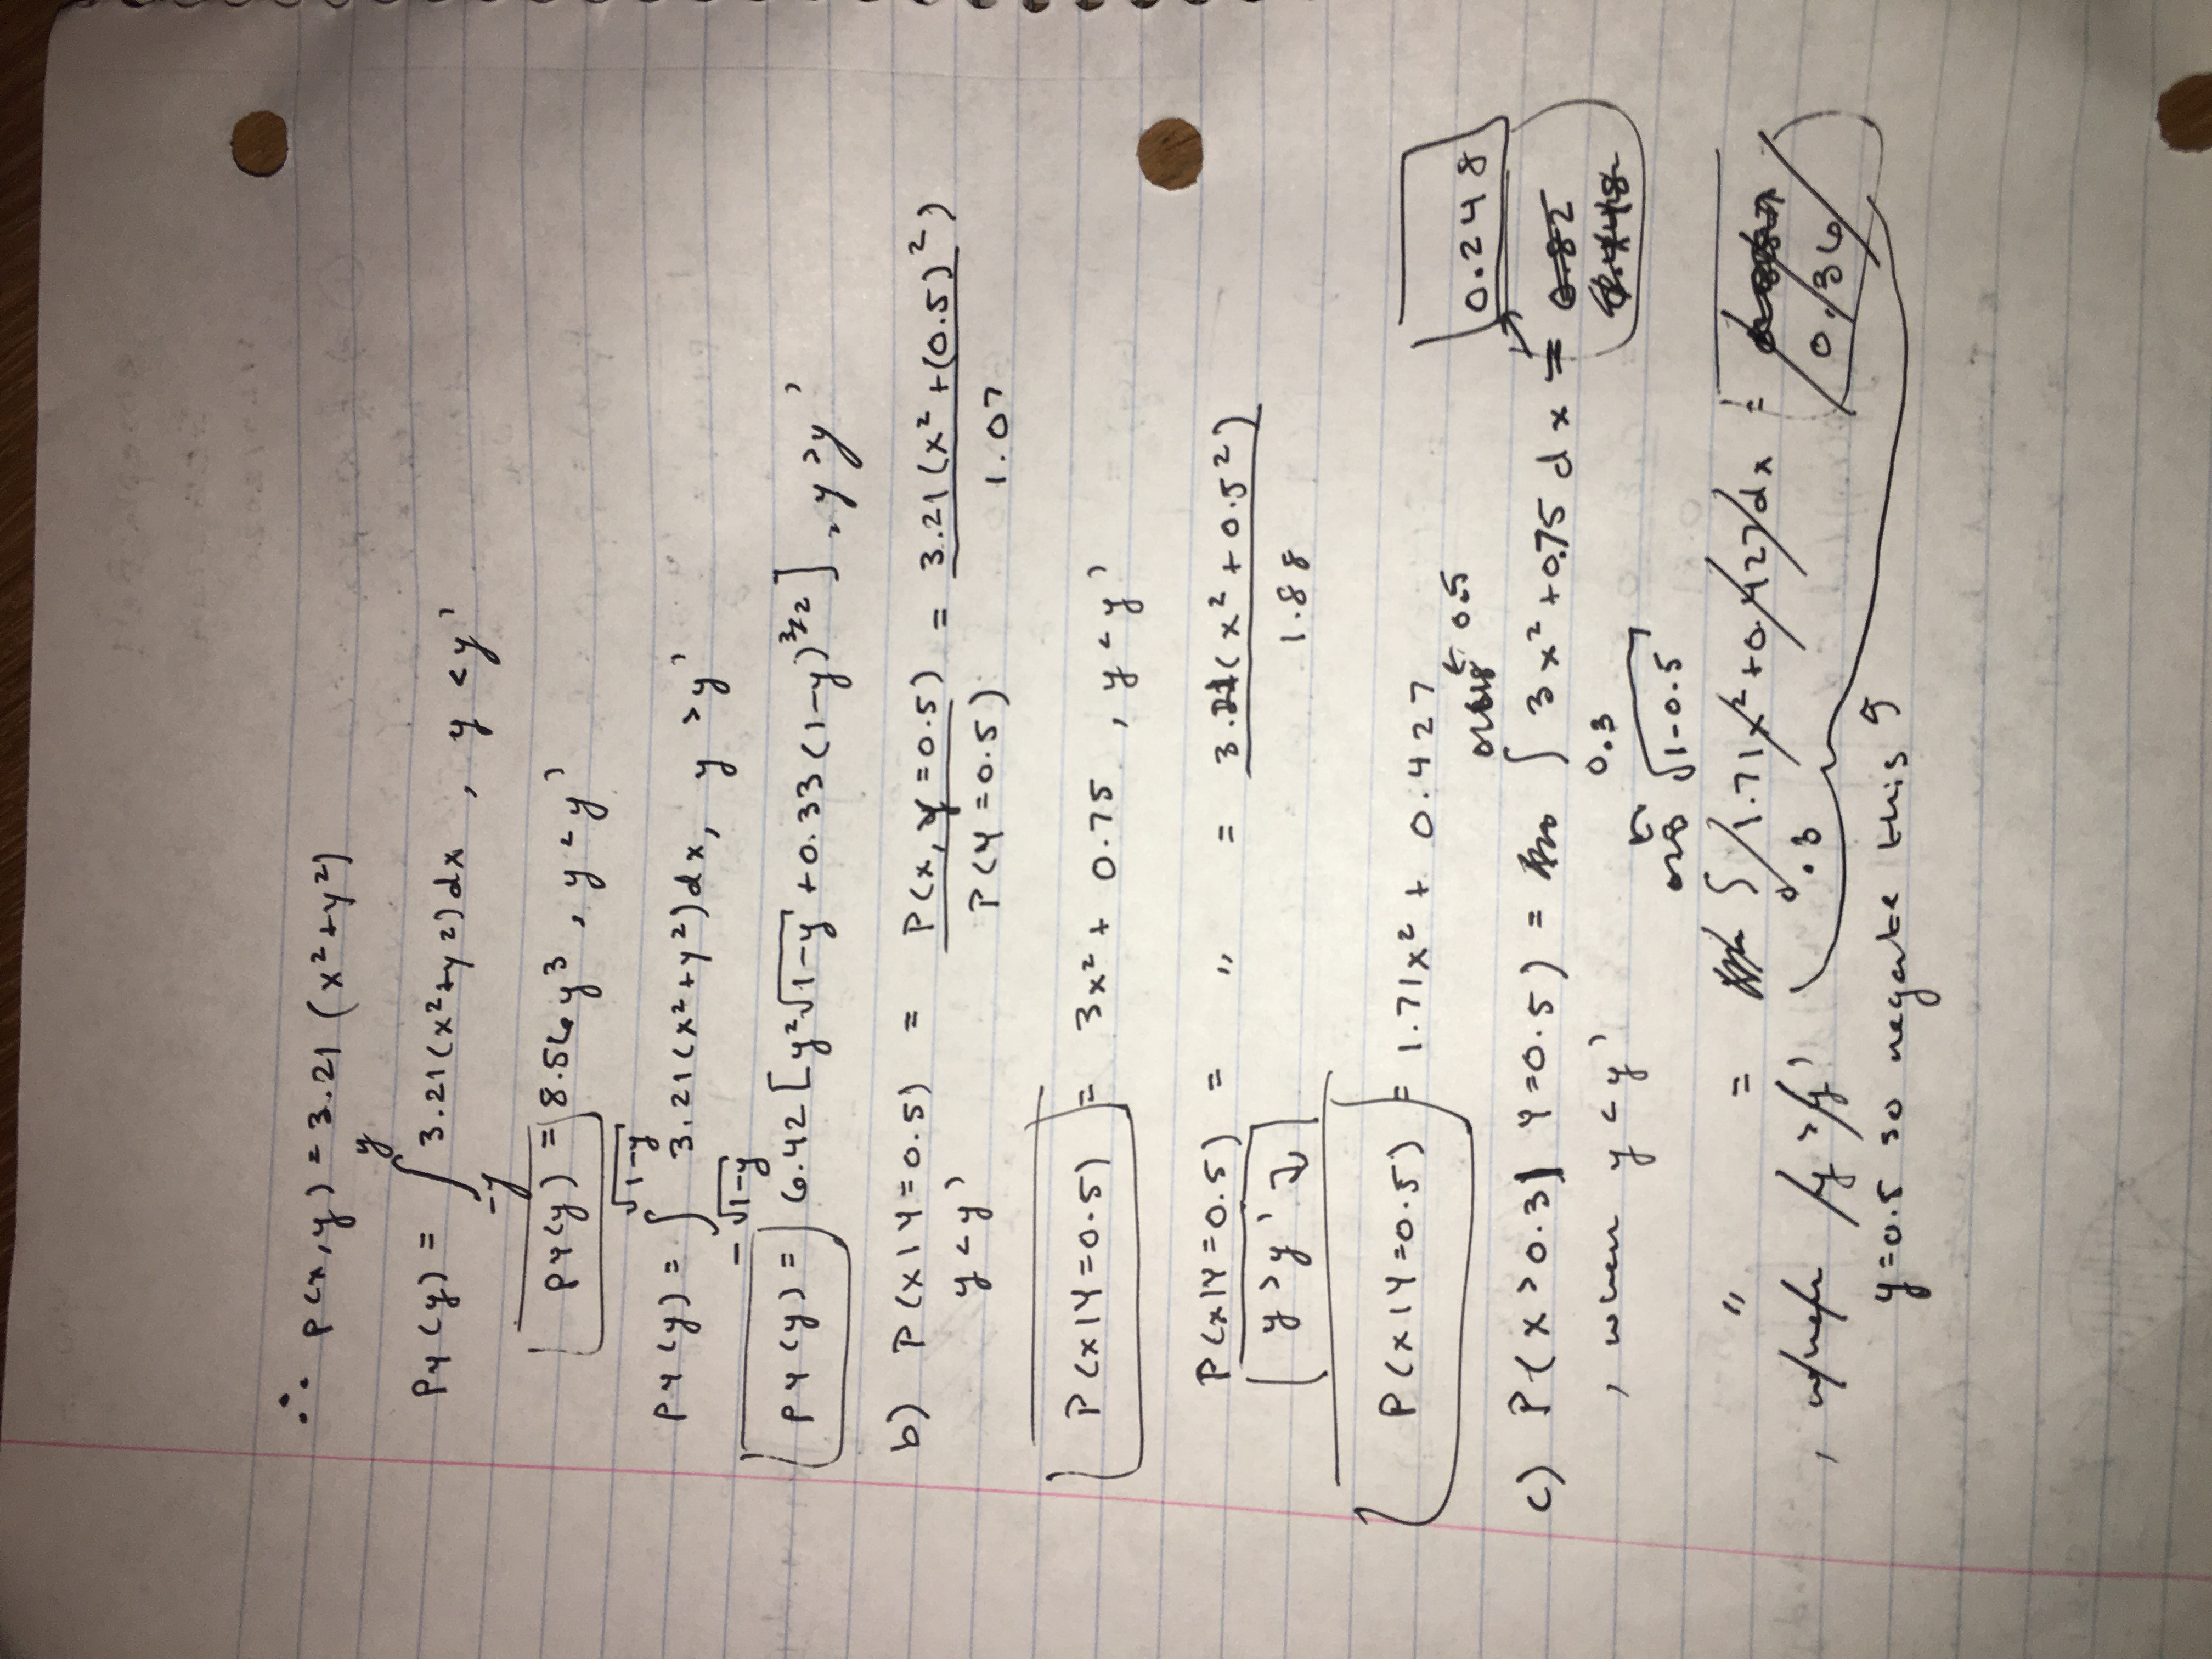 ∴ p(x,y) = 3.21 (x²+y²)
p_Y(y) = ∫_{-y}^{y} 3.21(x²+y²)dx , y < y'
p_Y(y) = 8.56y³ , y < y'
p_Y(y) = ∫_{-√(1-y)}^{√(1-y)} 3.21(x²+y²)dx, y > y'
p_Y(y) = 6.42 [y²√(1-y) + 0.33(1-y)^{3/2}] , y > y'
b) P(x|Y=0.5) = P(x, y=0.5) / P(Y=0.5) = 3.21(x²+(0.5)²) / 1.07
y < y'
P(x|Y=0.5) = 3x² + 0.75 , y < y'
P(x|Y=0.5) = " = 3.21(x²+0.5²) / 1.88
y > y' ↴
P(x|Y=0.5) = 1.71x² + 0.427
c) P(x>0.3| Y=0.5) = ∫_{0.3}^{0.5} 3x²+0.75 dx = 0.82 0.248
, when y < y'
" = ∫_{0.3}^{√(1-0.5)} 1.71x²+0.427dx = 0.36
, when y > y'
y=0.5 so negate this